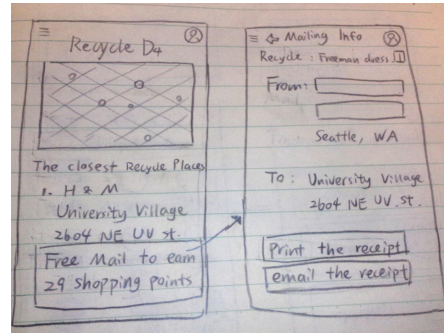 Recycle D4
The closest Recycle Places
1. H & M
University Village
2604 NE UV st.
Free Mail to earn
29 shopping points
Mailing Info
Recycle : Freeman dress 1
From:
Seattle, WA
To : University Village
2604 NE UV. st.
Print the receipt
email the receipt